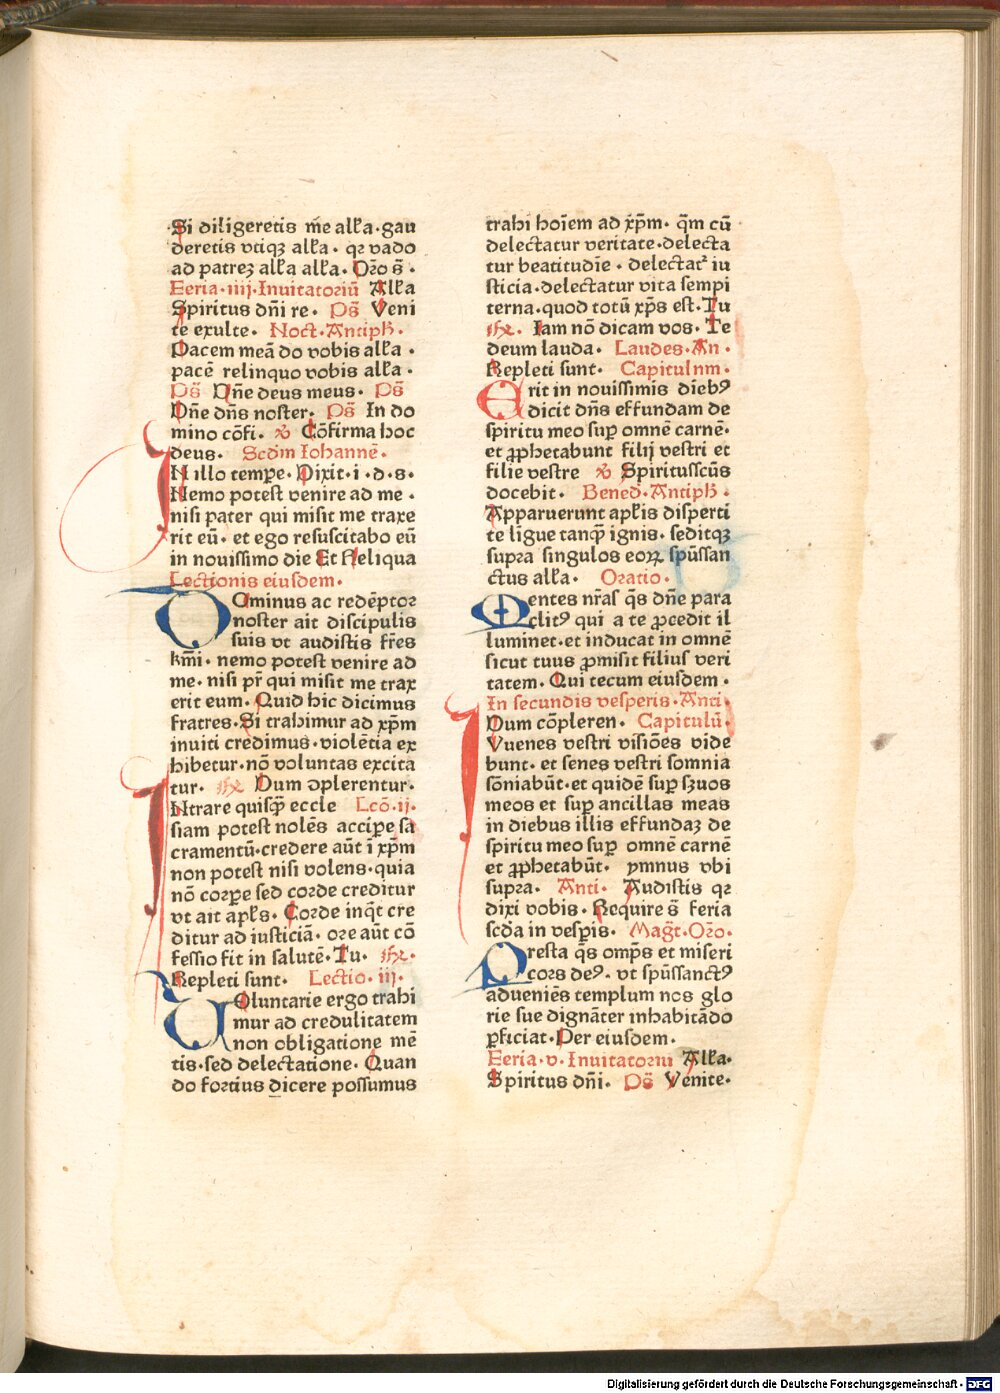 Si diligeretis m̄e alľa· gau
deretis vtiqꝫ alľa· qꝛ vado
ad patreꝫ alľa alľa· Oꝛ̄o s̄·
Feria·iiij·Inuitatoriū Alľa
Spiritus dn̄i re· Ps̄ Veni
te exulte· Noct·Antiph̄·
Pacem meā do vobis alľa·
pacē relinquo vobis alľa·
Ps̄ Dn̄e deus meus· Ps̄
Dn̄e dn̄s noster· Ps̄ In do
mino cōfi· ℣ Cōfirma hoc
deus· Scdm Iohannē·
IN illo tempe· Dixit·i·d·s·
Nemo potest venire ad me·
nisi pater qui misit me traxe
rit eū· et ego resuscitabo eū
in nouissimo die Et Reliqua
Lectionis eiusdem·
DOminus ac redēptoꝛ
noster ait discipulis
suis vt audistis fr̄es
km̄i· nemo potest venire ad
me· nisi pr̄ qui misit me trax
erit eum· Quid hic dicimus
fratres· Si trahimur ad xp̄m
inuiti credimus·violētia ex
hibetur·nō voluntas excita
tur· ℟ Dum ꝯplerentur·
INtrare quisqꝫ eccle Lcō·ij·
siam potest nolēs accipe sa
cramentū·credere aūt ī xp̄m
non potest nisi volens·quia
nō corpe sed corde creditur
vt ait apľs· Corde inq̄t cre
ditur ad iusticiā· ore aūt cō
fessio fit in salutē·Tu· ℟·
Repleti sunt· Lectio·iij·
VOluntarie ergo trahi
mur ad credulitatem
non obligatione mē
tis·sed delectatione· Quan
do foꝛtius dicere possumus
trahi hoīem ad xp̄m· qm̄ cū
delectatur veritate·delecta
tur beatitudīe· delectat᷑ iu
sticia·delectatur vita sempi
terna·quod totū xp̄s est·Tu
℟· Iam nō dicam vos· Te
deum lauda· Laudes·An·
Repleti sunt· Capitulnm·
ERit in nouissimis dīebꝰ
dicit dn̄s effundam de
spiritu meo suꝑ omnē carnē·
et ꝓphetabunt filij vestri et
filie vestre ℣ Spiritusscūs
docebit· Bened·Antiph̄·
Apparuerunt apľis disperti
te līgue tanqꝫ ignis· seditqꝫ
supra singulos eoꝝ spūssan
ctus alľa· Oꝛatio·
MEntes nr̄as q̄s dn̄e para
clitꝰ qui a te ꝓcedit il
luminet·et inducat in omnē
sicut tuus ꝓmisit filius veri
tatem· Qui tecum eiusdem·
In secundis vesperis·Anti·
Dum cōpleren· Capitulū·
IVuenes vestri visiōes vide
bunt· et senes vestri somnia
sōniabūt·et quidē suꝑ sꝫuos
meos et suꝑ ancillas meas
in diebus illis effundaꝫ de
spiritu meo suꝑ omnē carnē
et ꝓphetabūt· ymnus vbi
supra· Anti· Audistis qꝛ
dixi vobis· Require s̄ feria
scda in vesꝑis· Mag̅t·Oꝛ̄o·
PResta q̄s omp̄s et miseri
cors deꝰ· vt spūssanctꝰ
adueniēs templum nos glo
rie sue dignāter inhabitādo
ꝑficiat·Per eiusdem·
Feria·v·Inuitatoriu Alľa·
Spiritus dn̄i· Ps̄ Venite·
Digitalisierung gefördert durch die Deutsche Forschungsgemeinschaft - DFG